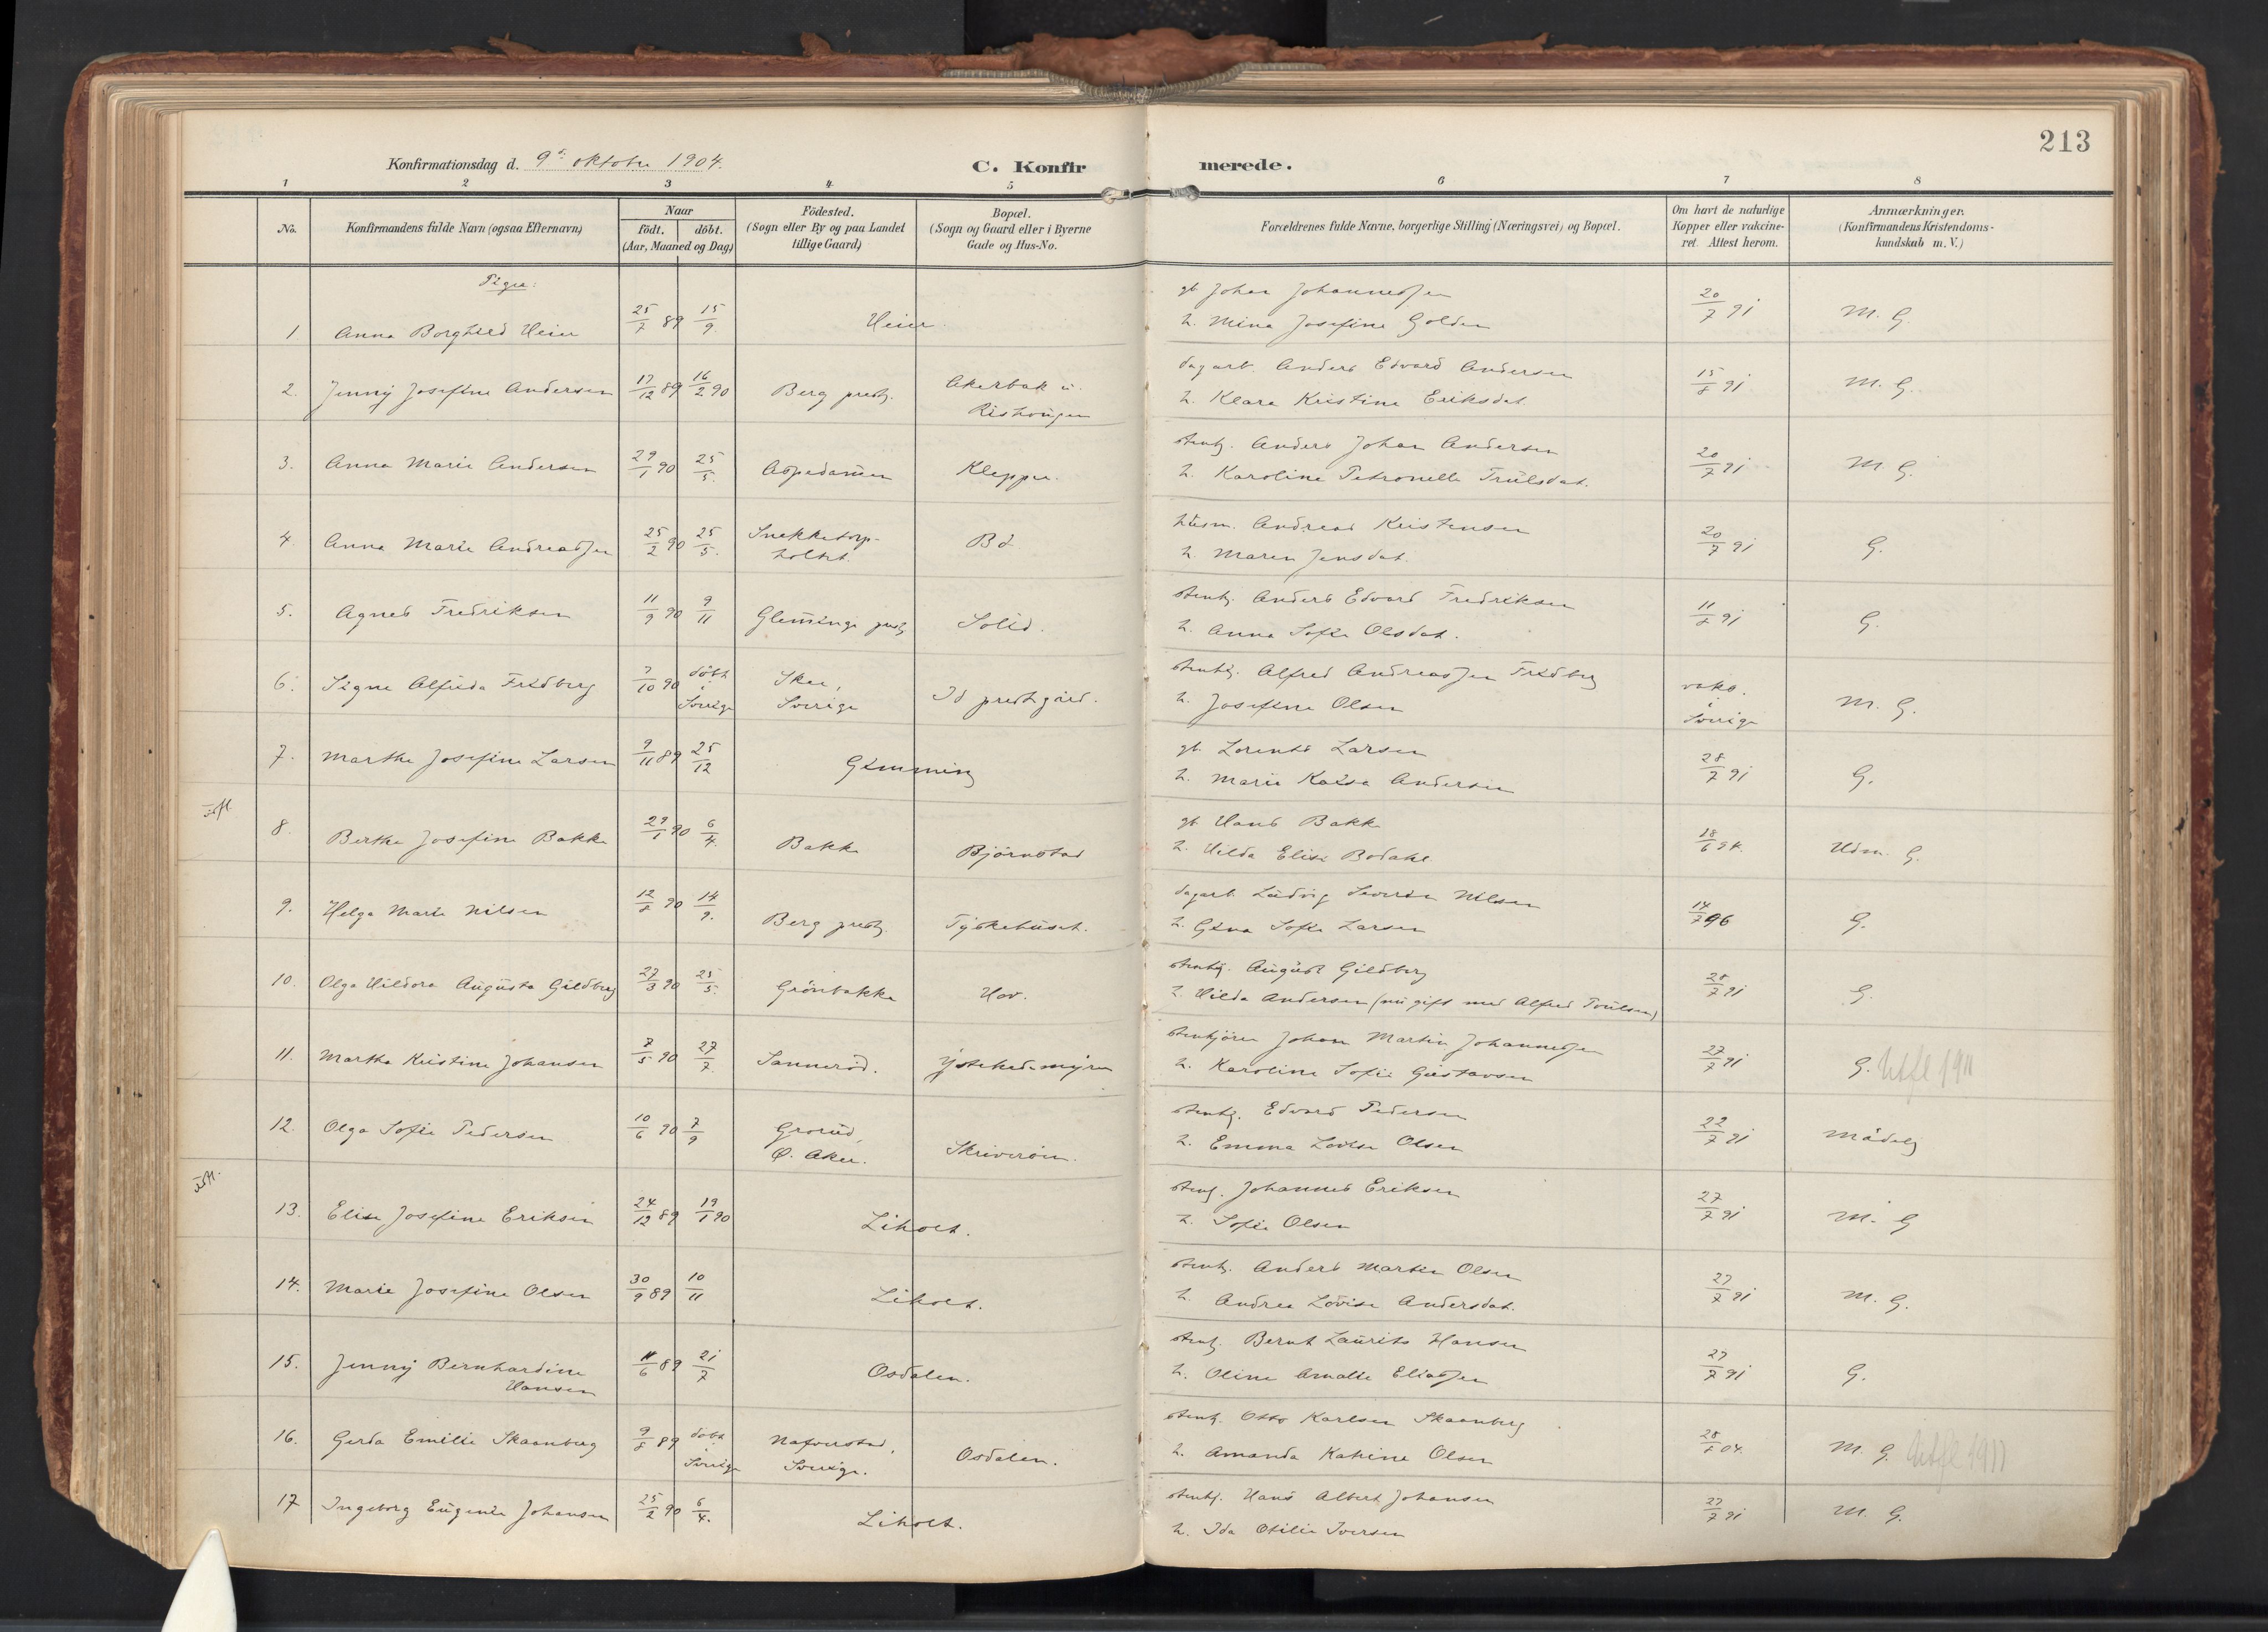 213
Konfirmationsdag d. 9de oktober 1904.
C. Konfirmerede.
1 2 3 4 5 6 7 8
No.
Konfirmandens fulde Navn (ogsaa Efternavn)
Naar
födt. döbt.
(Aar, Maaned og Dag)
Födested.
(Sogn eller By og paa Landet
tillige Gaard)
Bopæl.
(Sogn og Gaard eller i Byerne
Gade og Hus-No.
Forældrenes fulde Navne, borgerlige Stilling (Næringsvei) og Bopæl.
Om havt de naturlige
Kopper eller vakcine-
ret. Attest herom.
Anmærkninger.
(Konfirmandens Kristendoms-
kundskab m. V.)
Piger:
1 Anna Borghild Heier 25/7 89 15/9. Heier. gb. Johan Johannessen 20/7 91 M. G.
h. Mina Josefine Golden
2. Jenny Josefine Andersen 17/12 89 16/2 90 Berg prestg. Akerbak u. dagarb. Anders Edvard Andersen 15/8 91 M. G.
Rishaugen h. Klara Kristine Eriksdat.
3. Anna Marie Andersen 29/1 90 25/5. Aspedamen Kleppe. stenh. Anders Johan Andersen 20/7 91 M. G.
h. Karoline Petronelle Trulsdat.
4. Anna Marie Andreassen 25/2 90 25/5. Snekketorp- Bd husm. Andreas Kristensen 20/7 91 G.
holtet. h. Maren Jensdat.
5. Agnes Fredriksen 11/9 90 9/11 Glemminge prestg. Solid. stenh. Anders Edvard Fredriksen 11/8 91 G.
h. Anna Sofie Olsdat.
6. Signe Alfrida Fridberg 7/10 90 döbt i Sverige Skee, Sverige Id prestgård. stenh. Alfred Andreassen Fridberg vaks. i Sverige M. G.
h. Josefine Olsen
7. Marthe Josefine Larsen 9/11 89 25/12 Gimming gb. Lorents Larsen 28/7 91 G.
h. Marie Kaisa Andersen
utfl.
8. Berthe Josefine Bakke 29/1 90 6/4. Bakke Björnstad gb. Hans Bakke 18/6 94. Udm. G.
h. Hilda Elise Bodahl
9. Helga Marie Nilsen 12/8 90 14/9. Berg prestg. Tyskehuset. dagarb. Ludvig Severin Nilsen 14/7 96 G.
h. Gina Sofie Larsen
10. Olga Hildora Augusta Gildberg 27/3 90 25/5. Grönbakke Hov. stenh. August Gildberg 28/7 91 G.
h. Hilda Andersen (nu gift med Alfred Trulsen)
11. Martha Kristine Johansen 7/5 90 27/7. Sanneröd. Ystehedemyren stenhjörer Johan Martin Johannessen 27/7 91 G. Utfl 1911
h. Karoline Sofie Gustavsen
12. Olga Sofie Pedersen 10/6 90 7/9 Grorud, stenh. Edvard Pedersen 22/7 91 Mådelg
Ö. Aker. Skriveröen. h. Emma Lovise Olsen
utfl.
13. Elise Josefine Eriksen 24/12 89 19/1 90 Liholt. stenh. Johannes Eriksen 27/7 91 M. G
h. Sofie Olsen
14. Marie Josefine Olsen 30/9 89 10/11 Liholt. stenh. Anders Martin Olsen 27/7 91 M. G.
h. Andrea Lovise Andersdat.
15. Jenny Bernhardine 11/6 89 21/7 Osdalen. stenh. Bernt Laurits Hansen 27/7 91 G.
Hansen h. Oline Amalie Eliassen
16. Gerda Emilie Skaanberg 9/8 89 döbt i Sverige Naverstad, Sverige. Osdalen. stenh. Otto Karlsen Skaanberg 28/8 04. M. G. Utfl 1911
h. Amanda Katrine Olsen
17 Ingeborg Eugenie Johansen 25/2 90 6/4. Liholt. stenh. Hans Albert Johansen 27/7 91 M. G.
h. Ida Otilie Iversen